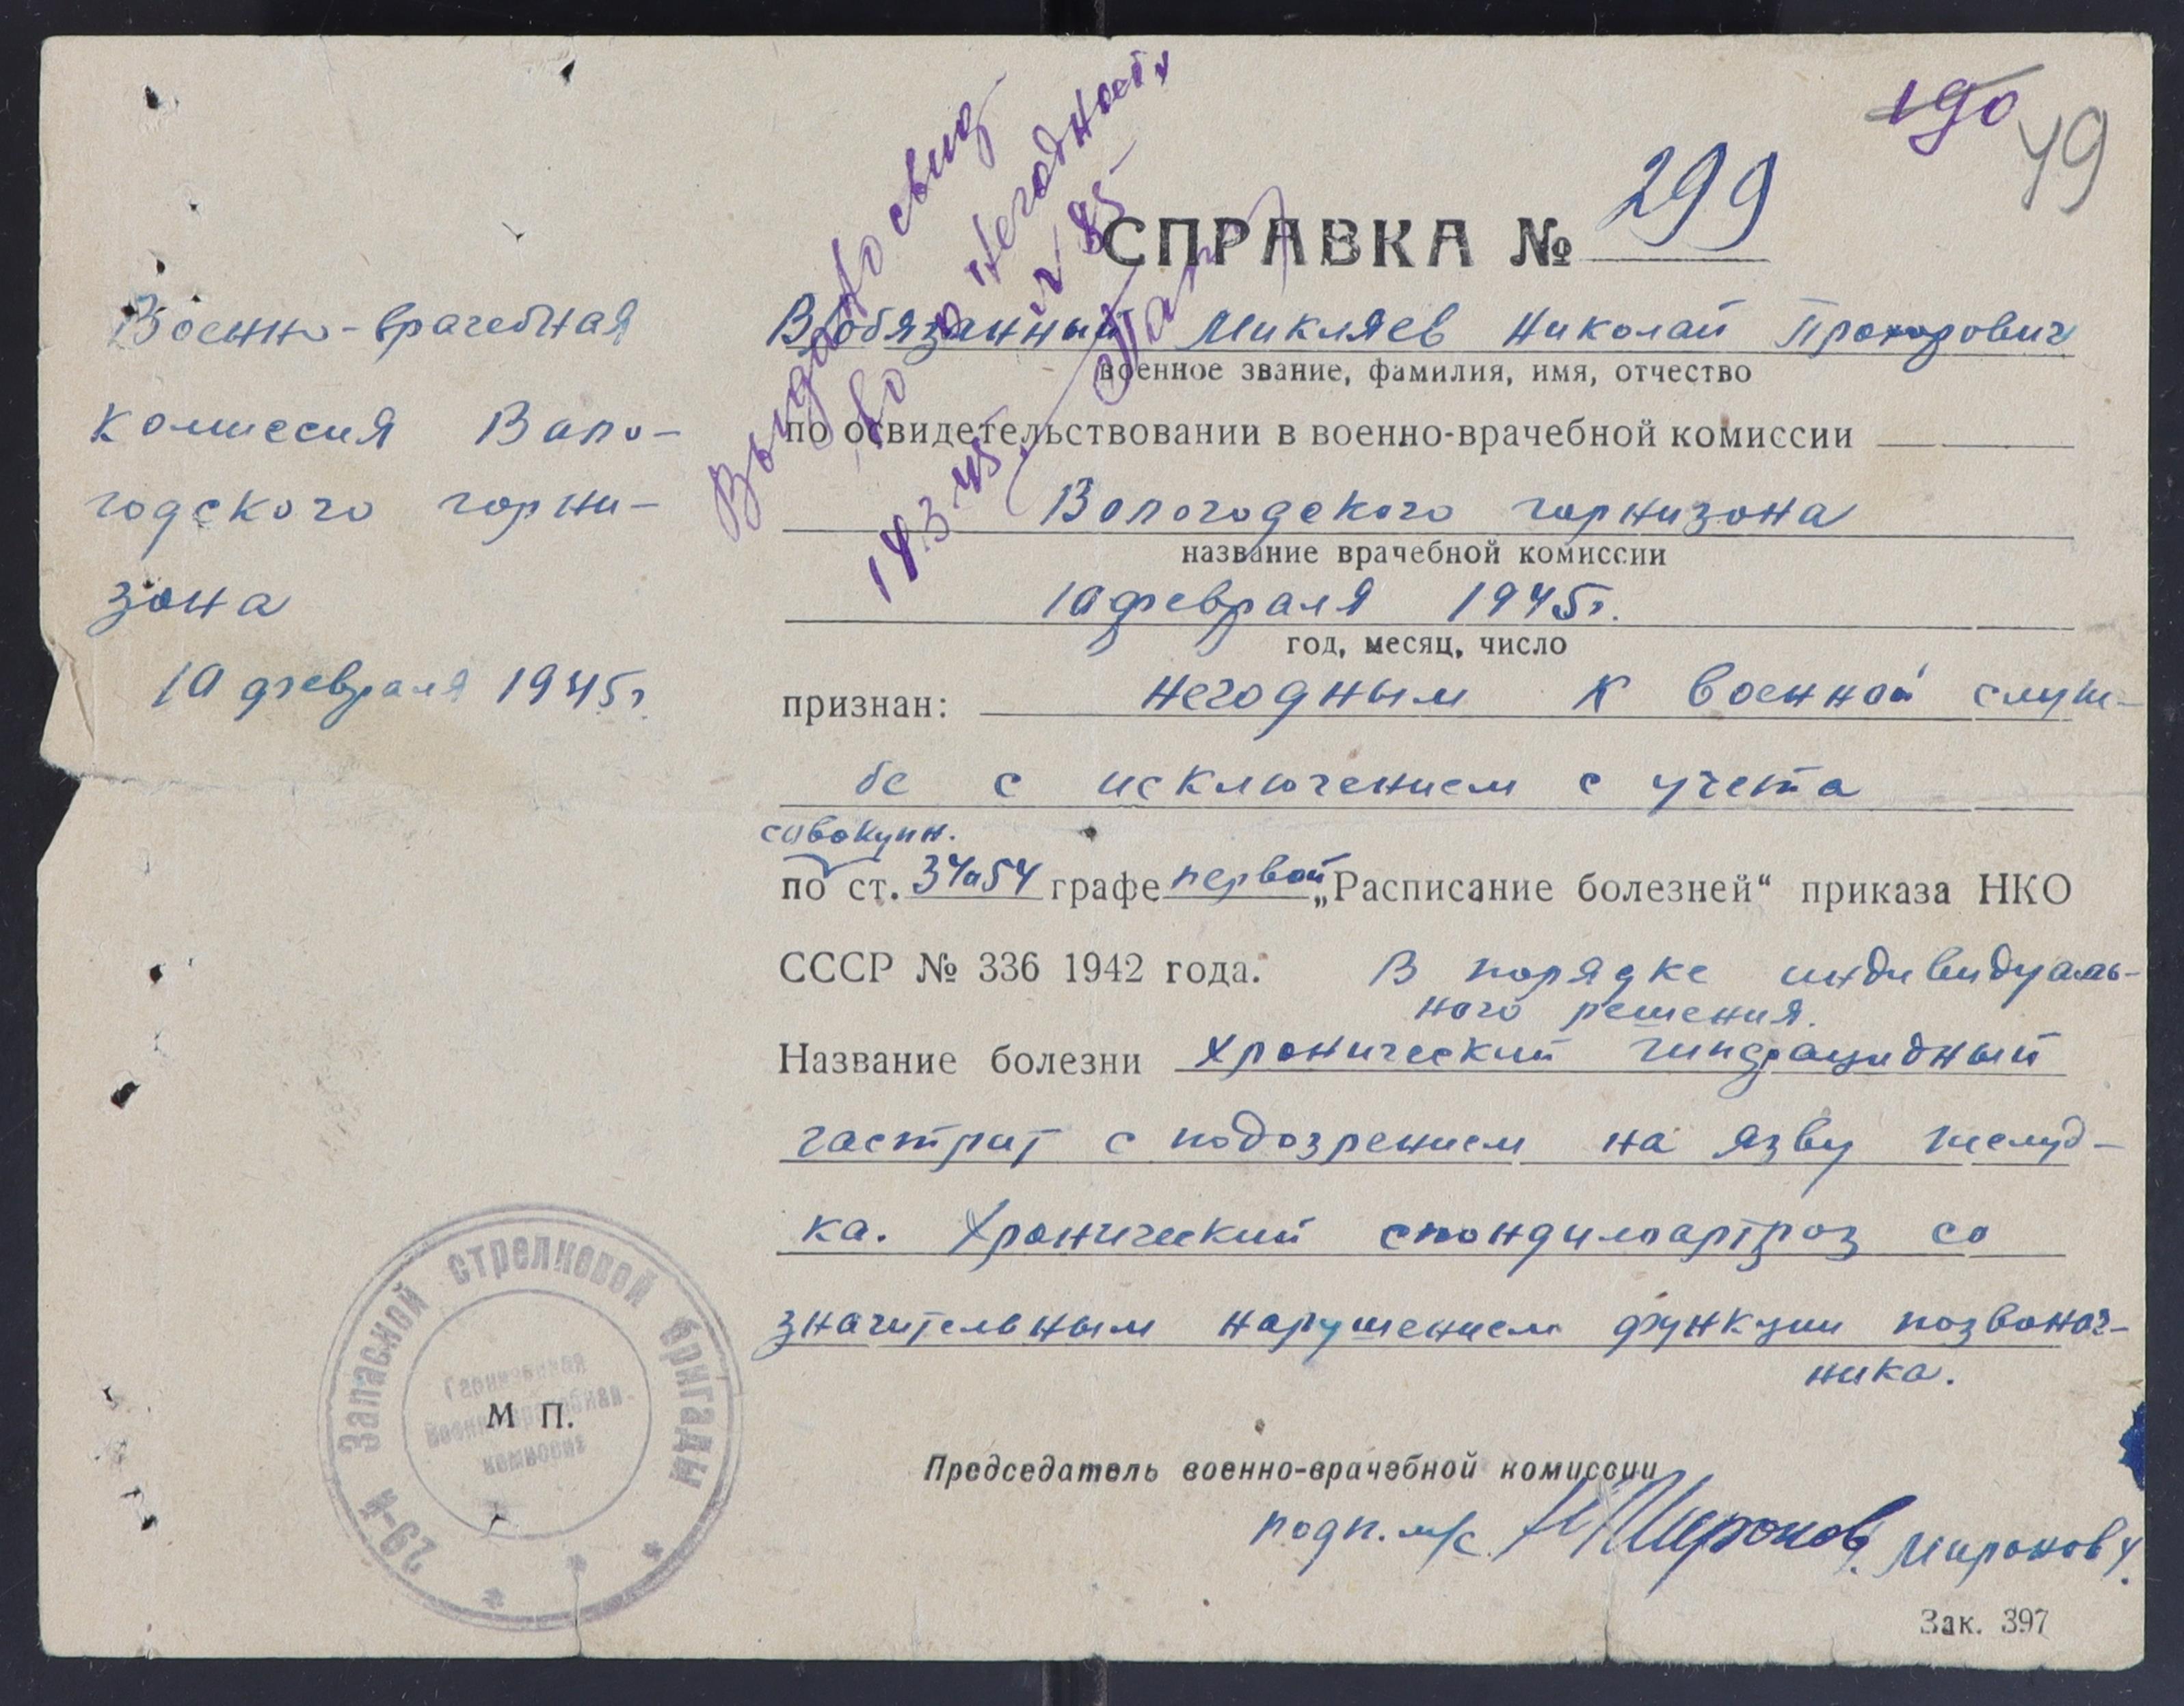 190
49
СПРАВКА № 299
Выдано свид
во о негодности
н 85
14.3.45
Военно-врачебная
комиссия Воло-
годского горни-
зона
10 февраля 1945г.
В/обязанный Микляев Николай Прохорович
военное звание, фамилия, имя, отчество
по освидетельствовании в военно-врачебной комиссии
Вологодского горнизона
название врачебной комиссии
10 февраля 1945г.
год, месяц, число
признан: негодным к военной служ-
бе с исключением с учета
совокупн.
по ст. 34а54 графе первой „Расписание болезней“ приказа НКО
СССР № 336 1942 года. В порядке индивидуаль-
ного решения.
Название болезни хронический гипрацидный
гастрит с подозрением на язву желуд-
ка. Хронический спондилоартроз со
значительным нарушением функции позвоноч-
ника.
29-й Запасной стрелковой бригады
Гарнизонная
военно-врачебная
комиссия
М П.
Председатель военно-врачебной комиссии
подп. м/с Миронов Миронов
Зак. 397